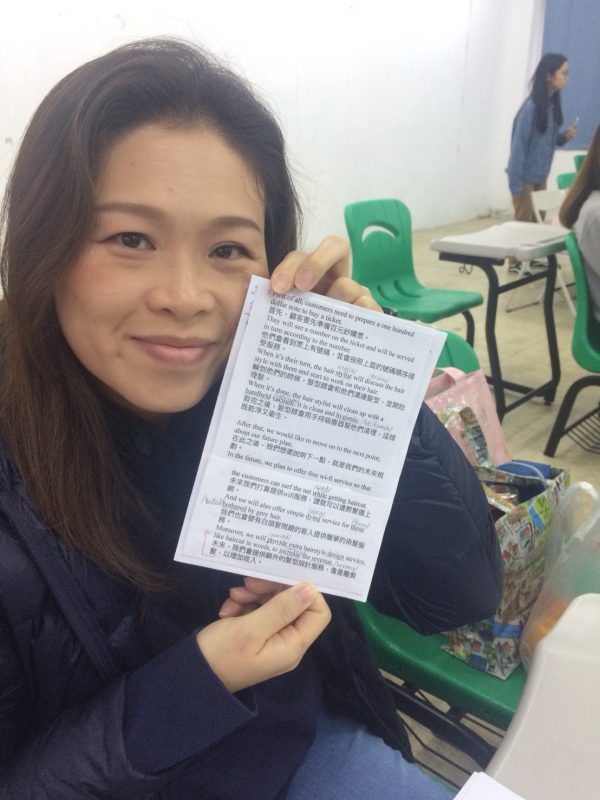 First of all, customers need to prepare a one hundred
dollar note to buy a ticket.
首先，顧客要先準備百元鈔購票。
They will see a number on the ticket and will be served
in turn according to the number.
他們會看到票上有號碼，並會按照上面的號碼順序接
受服務。
When it's their turn, the hair stylist will discuss the hair
style with them and start to work on their hair.
輪到他們的時候，髮型師會和他們溝通髮型，並開始
理髮。
When it's done, the hair stylist will clean up with a
handheld vacuum. It is clean and hygienic.
剪完之後，髮型師會用手持吸塵器幫他們清理，這樣
既乾淨又衛生。
After that, we would like to move on to the next point,
about our future plan.
在此之後，我們想要說明下一點，就是我們的未來規
劃。
In the future, we plan to offer free wi-fi service so that
the customers can surf the net while getting haircut.
未來我們打算提供wifi服務，讓就可以邊剪髮邊上
網。
And we will also offer simple service for those
bothered by grey hair.
我們也會替有白頭髮問題的客人提供簡單的染髮服
務。
Moreover, we will provide extra hairstyle design service,
like haircut in words, to increase the revenue.
未來，我們會提供額外的髮型設計服務，像是雕剪
髮，以增加收入。